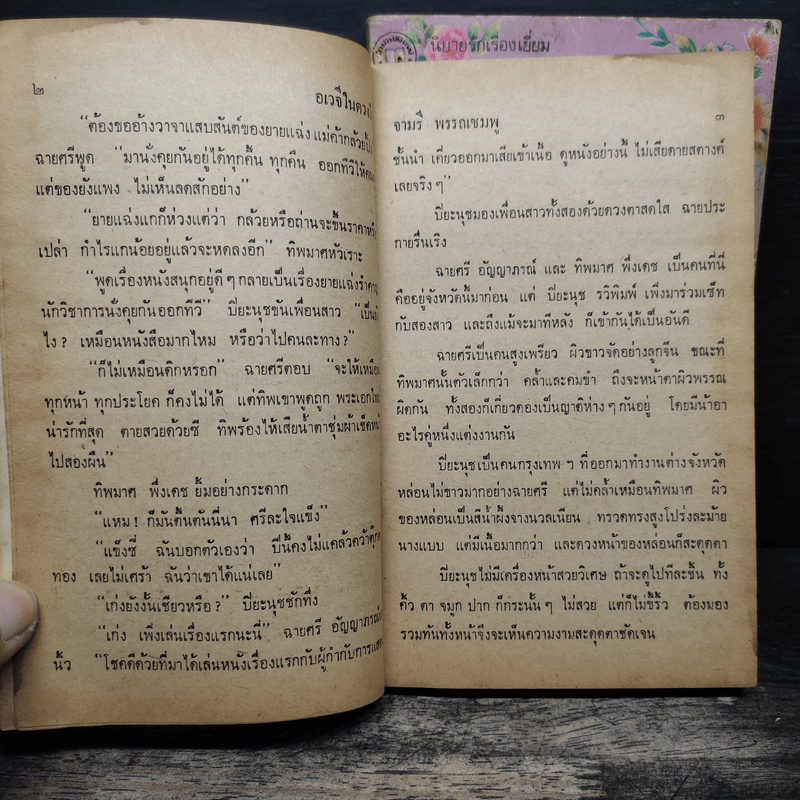 นิยายรักเรื่องเยี่ยม
๒
อเวจีในดวงใ
“ต้องขออ้างวาจาแสบสันต์ของยายแฉ่ง แม่ค้ากล้วยปิ้ง
ฉายศรีพูด “มานั่งคุยกันอยู่ได้ทุกคื้น ทุกคืน ออกทีวีให้คน
แต่ของยังแพง ไม่เห็นลดสักอย่าง”
“ยายแฉ่งแกก็ห่วงแต่ว่า กล้วยหรือถ่านจะขึ้นราคาหรือ
เปล่า กำไรแกน้อยอยู่แล้วจะหดลงอีก” ทิพมาศหัวเราะ
“พูดเรื่องหนังสนุกอยู่ดี ๆ กลายเป็นเรื่องยายแฉ่งรำคาญ
นักวิชาการนั่งคุยกันออกทีวี” ปิยะนุชขันเพื่อนสาว “เป็นยัง
ไง? เหมือนหนังสือมากไหม หรือว่าไปคนละทาง?”
“ก็ไม่เหมือนดิกหรอก” ฉายศรีตอบ “จะให้เหมือน
ทุกหน้า ทุกประโยค ก็คงไม่ได้ แต่ทิพเขาพูดถูก พระเอกไทย
น่ารักที่สุด ตายสวยด้วยซี ทิพร้องไห้เสียน้ำตาชุ่มผ้าเช็ดหน้า
ไปสองผืน”
ทิพมาศ พึ่งเดช ยิ้มอย่างกระดาก
“แหม! ก็มันตื้นตันนี่นา ศรีละใจแข็ง”
“แข็งซี่ ฉันบอกตัวเองว่า ปีนี้คงไม่แคล้วคว้าตุ๊ก
ทอง เลยไม่เศร้า ฉันว่าเขาได้แน่เลย”
“เก่งยังงั้นเชียวหรือ?” ปิยะนุชซักทึ่ง
“เก่ง เพิ่งเล่นเรื่องแรกนะนี่” ฉายศรี อัญญาภรณ์
นิ้ว “โชคดีด้วยที่มาได้เล่นหนังเรื่องแรกกับผู้กำกับการแสด
จามรี พรรณชมพู
๓
ชั้นนำ เคี่ยวออกมาเสียเข้าเนื้อ ดูหนังอย่างนี้ ไม่เสียดายสตางค์
เลยจริง ๆ”
ปิยะนุชมองเพื่อนสาวทั้งสองด้วยดวงตาสดใส ฉายประ
กายรื่นเริง
ฉายศรี อัญญาภรณ์ และ ทิพมาศ พึ่งเดช เป็นคนที่นี่
คืออยู่จังหวัดนี้มาก่อน แต่ ปิยะนุช รวิพิมพ์ เพิ่งมาร่วมเซ็ท
กับสองสาว และถึงแม้จะมาทีหลัง ก็เข้ากันได้เป็นอันดี
ฉายศรีเป็นคนสูงเพรียว ผิวขาวจัดอย่างลูกจีน ขณะที่
ทิพมาศนั้นตัวเล็กกว่า คล้ำและคมขำ ถึงจะหน้าตาผิวพรรณ
ผิดกัน ทั้งสองก็เกี่ยวดองเป็นญาติห่าง ๆ กันอยู่ โดยมีน้าอา
อะไรคู่หนึ่งแต่งงานกัน
ปิยะนุชเป็นคนกรุงเทพ ฯ ที่ออกมาทำงานต่างจังหวัด
หล่อนไม่ขาวมากอย่างฉายศรี แต่ไม่คล้ำเหมือนทิพมาศ ผิว
ของหล่อนเป็นสีน้ำผึ้งจางนวลเนียน ทรวดทรงสูงโปร่งละม้าย
นางแบบ แต่มีเนื้อมากกว่า และดวงหน้าของหล่อนก็สะดุดตา
ปิยะนุชไม่มีเครื่องหน้าสวยวิเศษ ถ้าจะดูไปทีละชิ้น ทั้ง
คิ้ว ตา จมูก ปาก ก็กระนั้น ๆ ไม่สวย แต่ก็ไม่ขี้ริ้ว ต้องมอง
รวมกันทั้งหน้าจึงจะเห็นความงามสะดุดตาชัดเจน